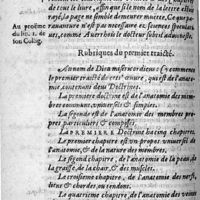 de tout le liure, afin que si le nom de la lettre
rayé, la page ne semble demeurer muette. Ce que
rauantmoins n'est pas necessaire es sermons
eux, comme Auerrhois le docteur subtil admoneste.
Au proëme
du liu. 1. de
son Collig.
Rubriques du premier traicté.
Au nom de Dieu misericordieux: Cy commence
le premier traicté de cest œuure, qui est de l'anato-
mie, contenant deux Doctrines.
La premiere est de l'anatomie des membres
communs, vniuersels & simples.
La seconde est de l'anatomie des membres pro-
pres particuliers & composez.
LA PREMIERE Doctrine ha cinq chapitres.
Le premier chapitre est vn propos vniuersel de
l'anatomie, & de la nature des membres.
Le second chapitre, de l'anatomie de la peau, de
la graisse, de la chair, & des muscles.
Le troisieme chapitre, de l'anatomie des nerfs, li-
gamens & chordes, ou tendons.
Le quatrieme chapitre, de l'anatomie des veines